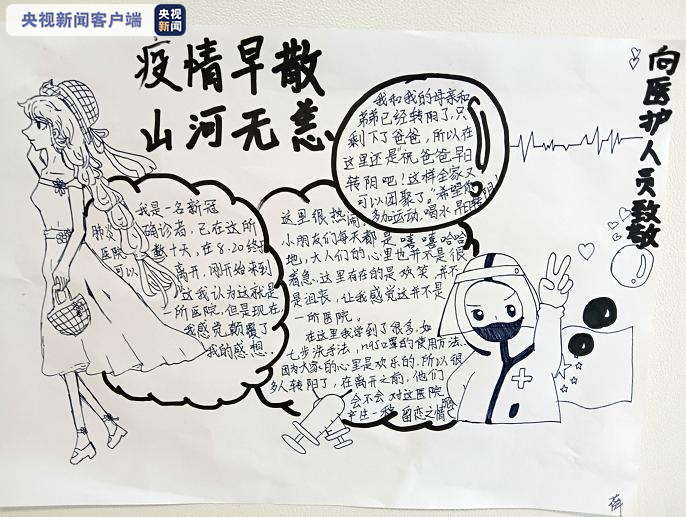 央视新闻客户端
央视新闻
疫情早散
山河无恙
向医护人员致敬
我和我的母亲和
弟弟已经转阳了,只
剩下了爸爸,所以在
这里还是“祝爸爸早日
转阴吧!这样全家又
可以团聚了。”希望您
多加运动,喝水,早日转阴!
我是一名新冠
肺炎确诊者,已在这所
医院数十天,在8.20终于
可以离开,刚开始来到
这我认为这就是
一所医院,但是现在
我感觉颠覆了
我的感想.
这里很热闹
小朋友们每天都是嘻嘻哈哈
地,大人们的心里也并不是很
着急,这里存在的是欢笑,并不
是沮丧,让我感觉这并不是
一所医院。
在这里我学到了很多,如
七步洗手法,n95口罩的使用方法.
因为大家的心里是欢乐的,所以很
多人转阴了,在离开之前,他们
会不会对这医院
产生一种留恋之情